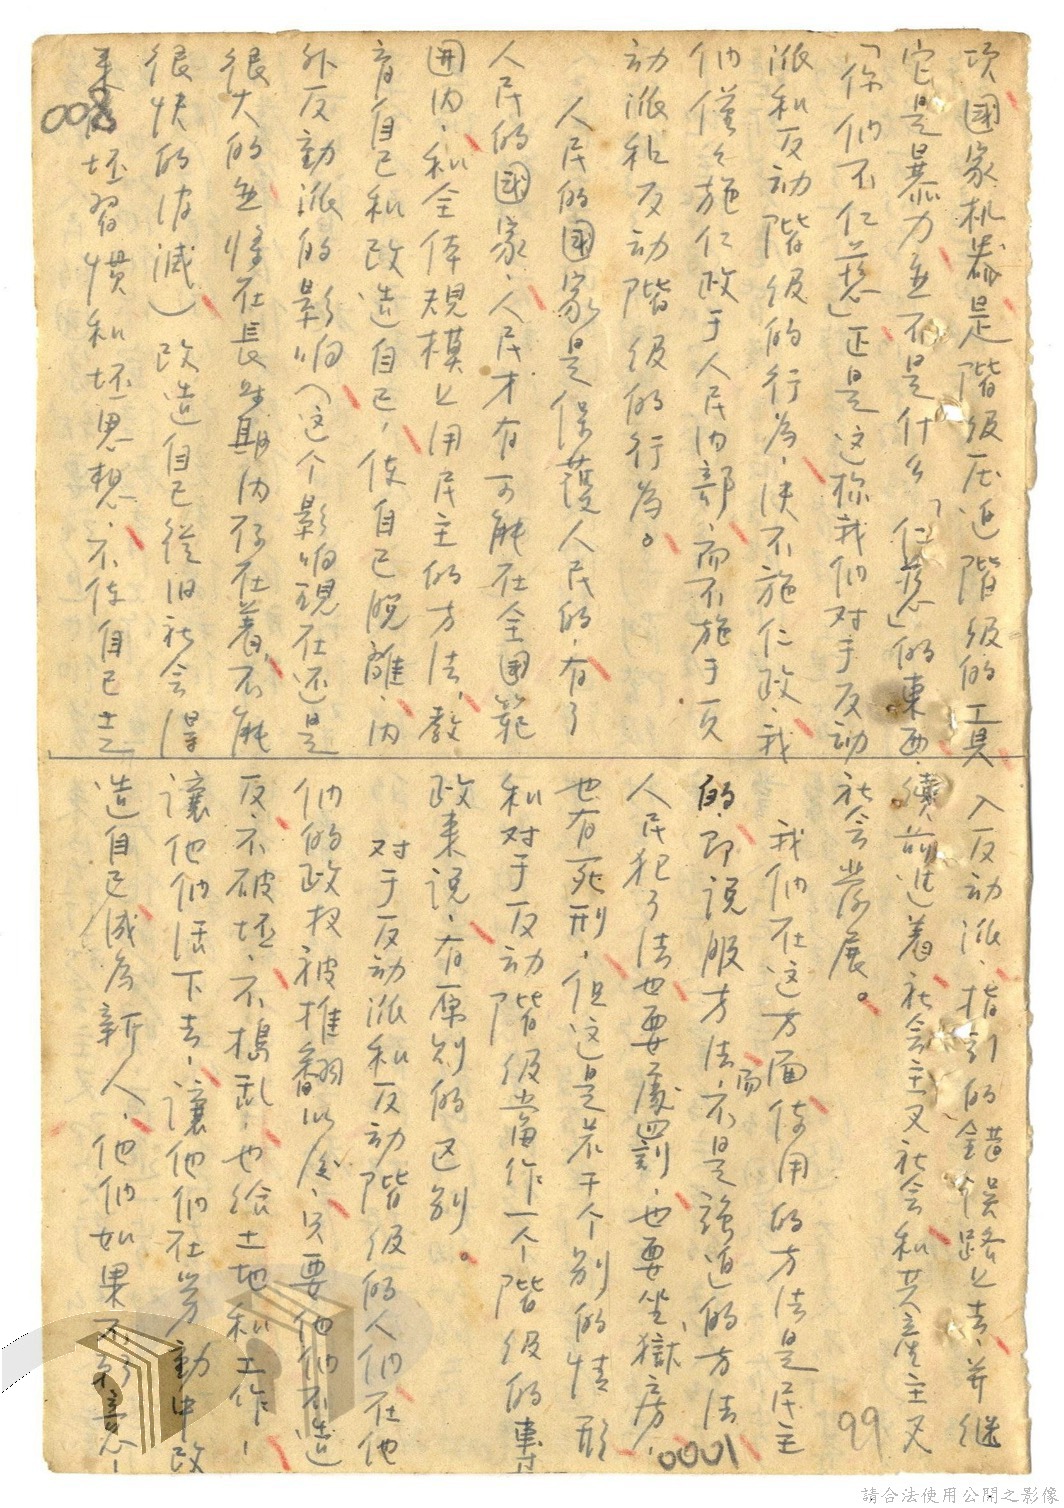 項國家机器是階级压迫階级的工具
它是暴力並不是什么「仁慈」的東西、
「你們不仁慈」正是这樣我們对于反动
派和反动階级的行為、决不施仁政、我
們僅々施仁政于人民内部、而不施于反
动派和反动階级的行為。
人民的國家是保護人民的、有了
人民的國家、人民才有可能在全国範
囲内、和全体規模上用民主的方法、教
育自已和改造自已、使自已脫離、内
外反動派的影响（这个影响現在还是
很大的並將在長时期内存在着、不能
很快的消滅）改造自已從旧社会得
来的坏習慣和坏思想、不使自已走
入反动派、指引的錯误路上去、并继
續前進着社会主义社会和共产主义
社会发展。
我們在这方面使用的方法是民主
的、即說服方法、而不是強迫的方法
人民犯了法也要處罰、也要坐獄房、
也有死刑、但这是若干个别的情形
和对于反动階级當作一个階级的專
政来說、有原则的区别。
对于反动派和反动階级的人們在他
們的政权被推翻以後、只要他們不造
反、不破坏、不搗乱、也给土地和工作、
讓他們活下去、讓他們在劳動中改
造自已成為新人、他們如果不願意、
008
99
0001
請合法使用公開之影像